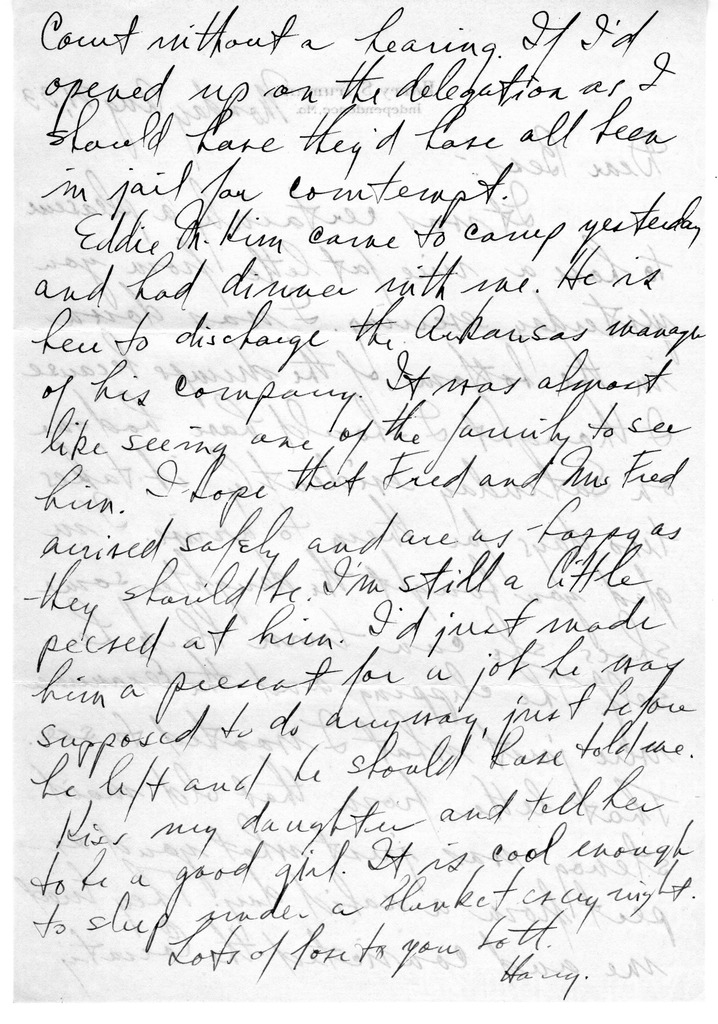 Court without a hearing. If I'd
opened up on the delegation as I
should have they'd have all been
in jail for comtempt.
Eddie McKim came to camp yesterday
and had dinner with me. He is
here to discharge the Arkansas manager
of his company. It was almost
like seeing one of the family to see
him. I hope that Fred and Mrs Fred
arrived safely and are as happy as
they should be. I'm still a little
peeved at him. I'd just made
him a present for a job he was
supposed to do anyway, just before
he left and he should have told me.
Kiss my daughter and tell her
to be a good girl. It is cool enough
to sleep under a blanket every night.
Lots of love to you both.
Harry.